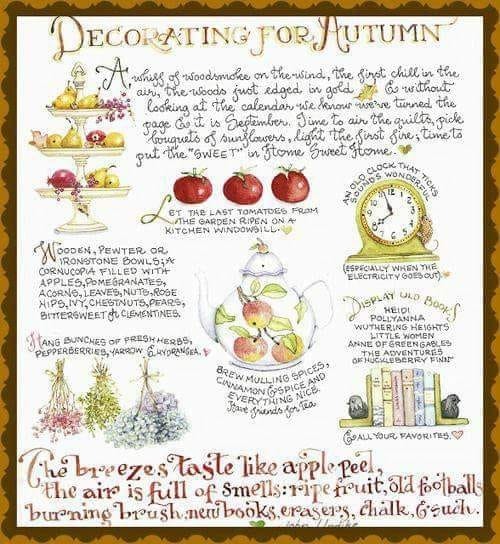 DECORATING FOR AUTUMN
A whiff of woodsmoke on the wind, the first chill in the
air, the woods just edged in gold & without
looking at the calendar we know we've turned the
page & it is September. Time to air the quilts, pick
bouquets of sunflowers, light the first fire; time to
put the "SWEET" in Home Sweet Home.
LET THE LAST TOMATOES FROM
THE GARDEN RIPEN ON A
KITCHEN WINDOWSILL.
AN OLD CLOCK THAT TICKS
SOUNDS WONDERFUL
(ESPECIALLY WHEN THE
ELECTRICITY GOES OUT).
WOODEN, PEWTER OR
IRONSTONE BOWLS; A
CORNUCOPIA FILLED WITH
APPLES, POMEGRANATES,
ACORNS, LEAVES, NUTS, ROSE
HIPS, IVY, CHESTNUTS, PEARS,
BITTERSWEET & CLEMENTINES.
DISPLAY OLD BOOKS
HEIDI
POLLYANNA
WUTHERING HEIGHTS
LITTLE WOMEN
ANNE OF GREEN GABLES
THE ADVENTURES
OF HUCKLEBERRY FINN
& ALL YOUR FAVORITES.
HANG BUNCHES OF FRESH HERBS,
PEPPERBERRIES, YARROW & HYDRANGEA.
BREW MULLING SPICES,
CINNAMON & SPICE AND
EVERYTHING NICE.
Have friends for Tea
The breezes taste like apple peel,
the air is full of smells: ripe fruit, old footballs
burning brush, new books, erasers, chalk, & such.
John Updike